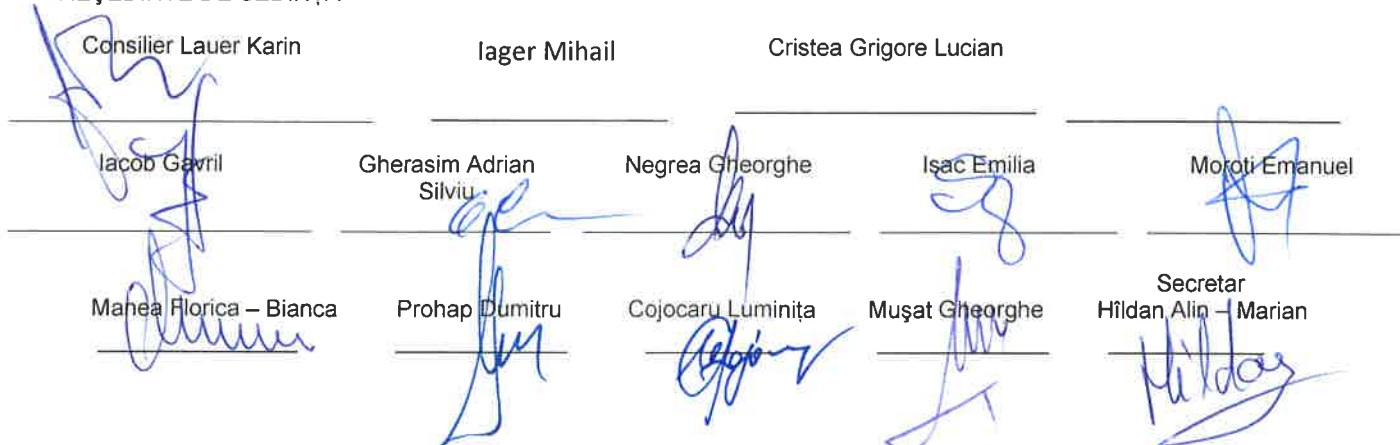 Consilier Lauer Karin Iager Mihail Cristea Grigore Lucian
Iacob Gavril Gherasim Adrian Silviu Negrea Gheorghe Isac Emilia Moroti Emanuel
Manea Florica – Bianca Prohap Dumitru Cojocaru Luminița Mușat Gheorghe Secretar
Hîldan Alin – Marian